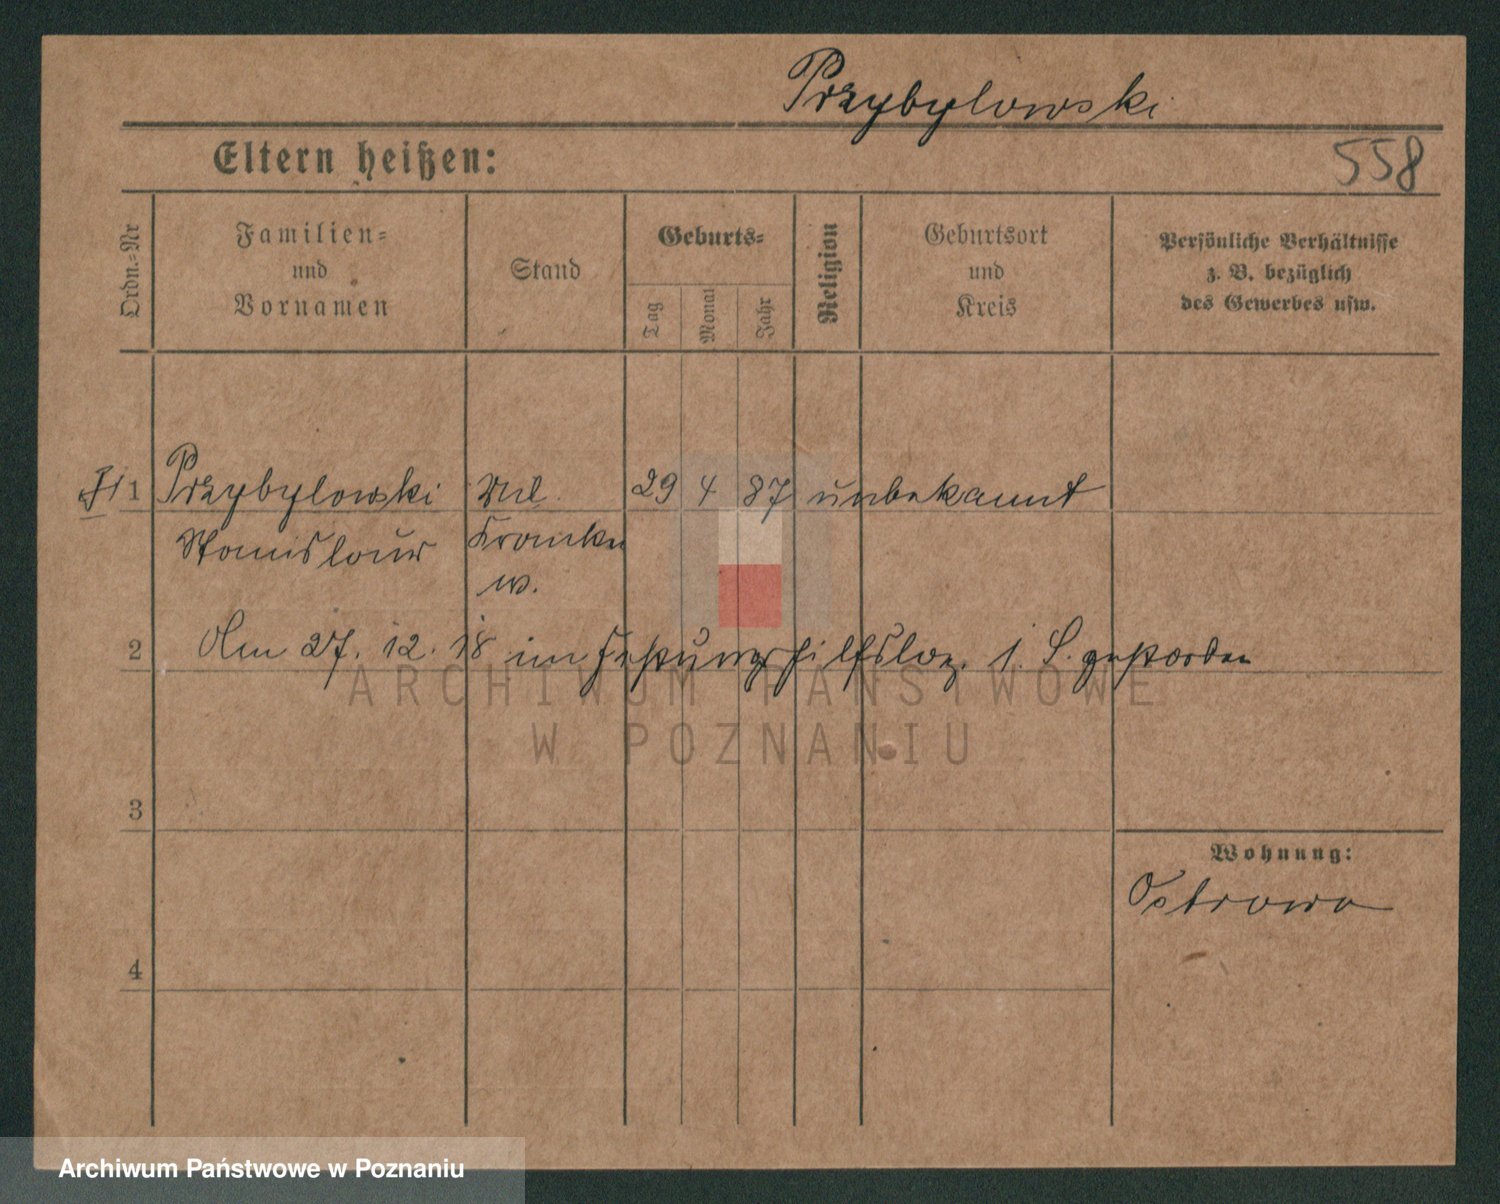 Przybylowski
Eltern heißen:
558
Ordn.-Nr
Familien-
und
Vornamen
Stand
Geburts-
Tag
Monat
Jahr
Religion
Geburtsort
und
Kreis
Persönliche Verhältnisse
z. B. bezüglich
des Gewerbes usw.
1 Przybylowski Mil. 29 4 87 unbekannt
Stanislaus Kranken
w.
2 Am 27. 12. 18 im Festungshilfslaz. gestorben
ARCHIWUM PAŃSTWOWE
W POZNANIU
3
Wohnung:
Ostrowo
4
Archiwum Państwowe w Poznaniu